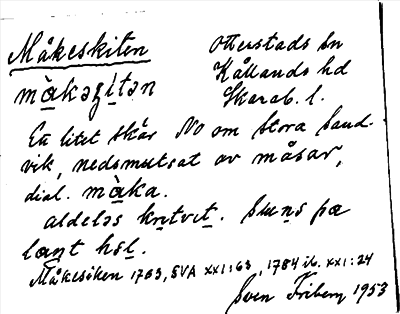 Måkeskiten Otterstads sn
màkəʂi̱tən Kållands hd
Skarab. l.
Ett litet skär NO om Stora Sand-
vik, nedsmutsat av måsar,
dial. màka.
aldeləs kri̱tvi̱t. Syns pa
laŋt hsl.
Måkesiken 1783, SVA XXI:63, 1784 ib. XXI:24
Sven Friberg 1953